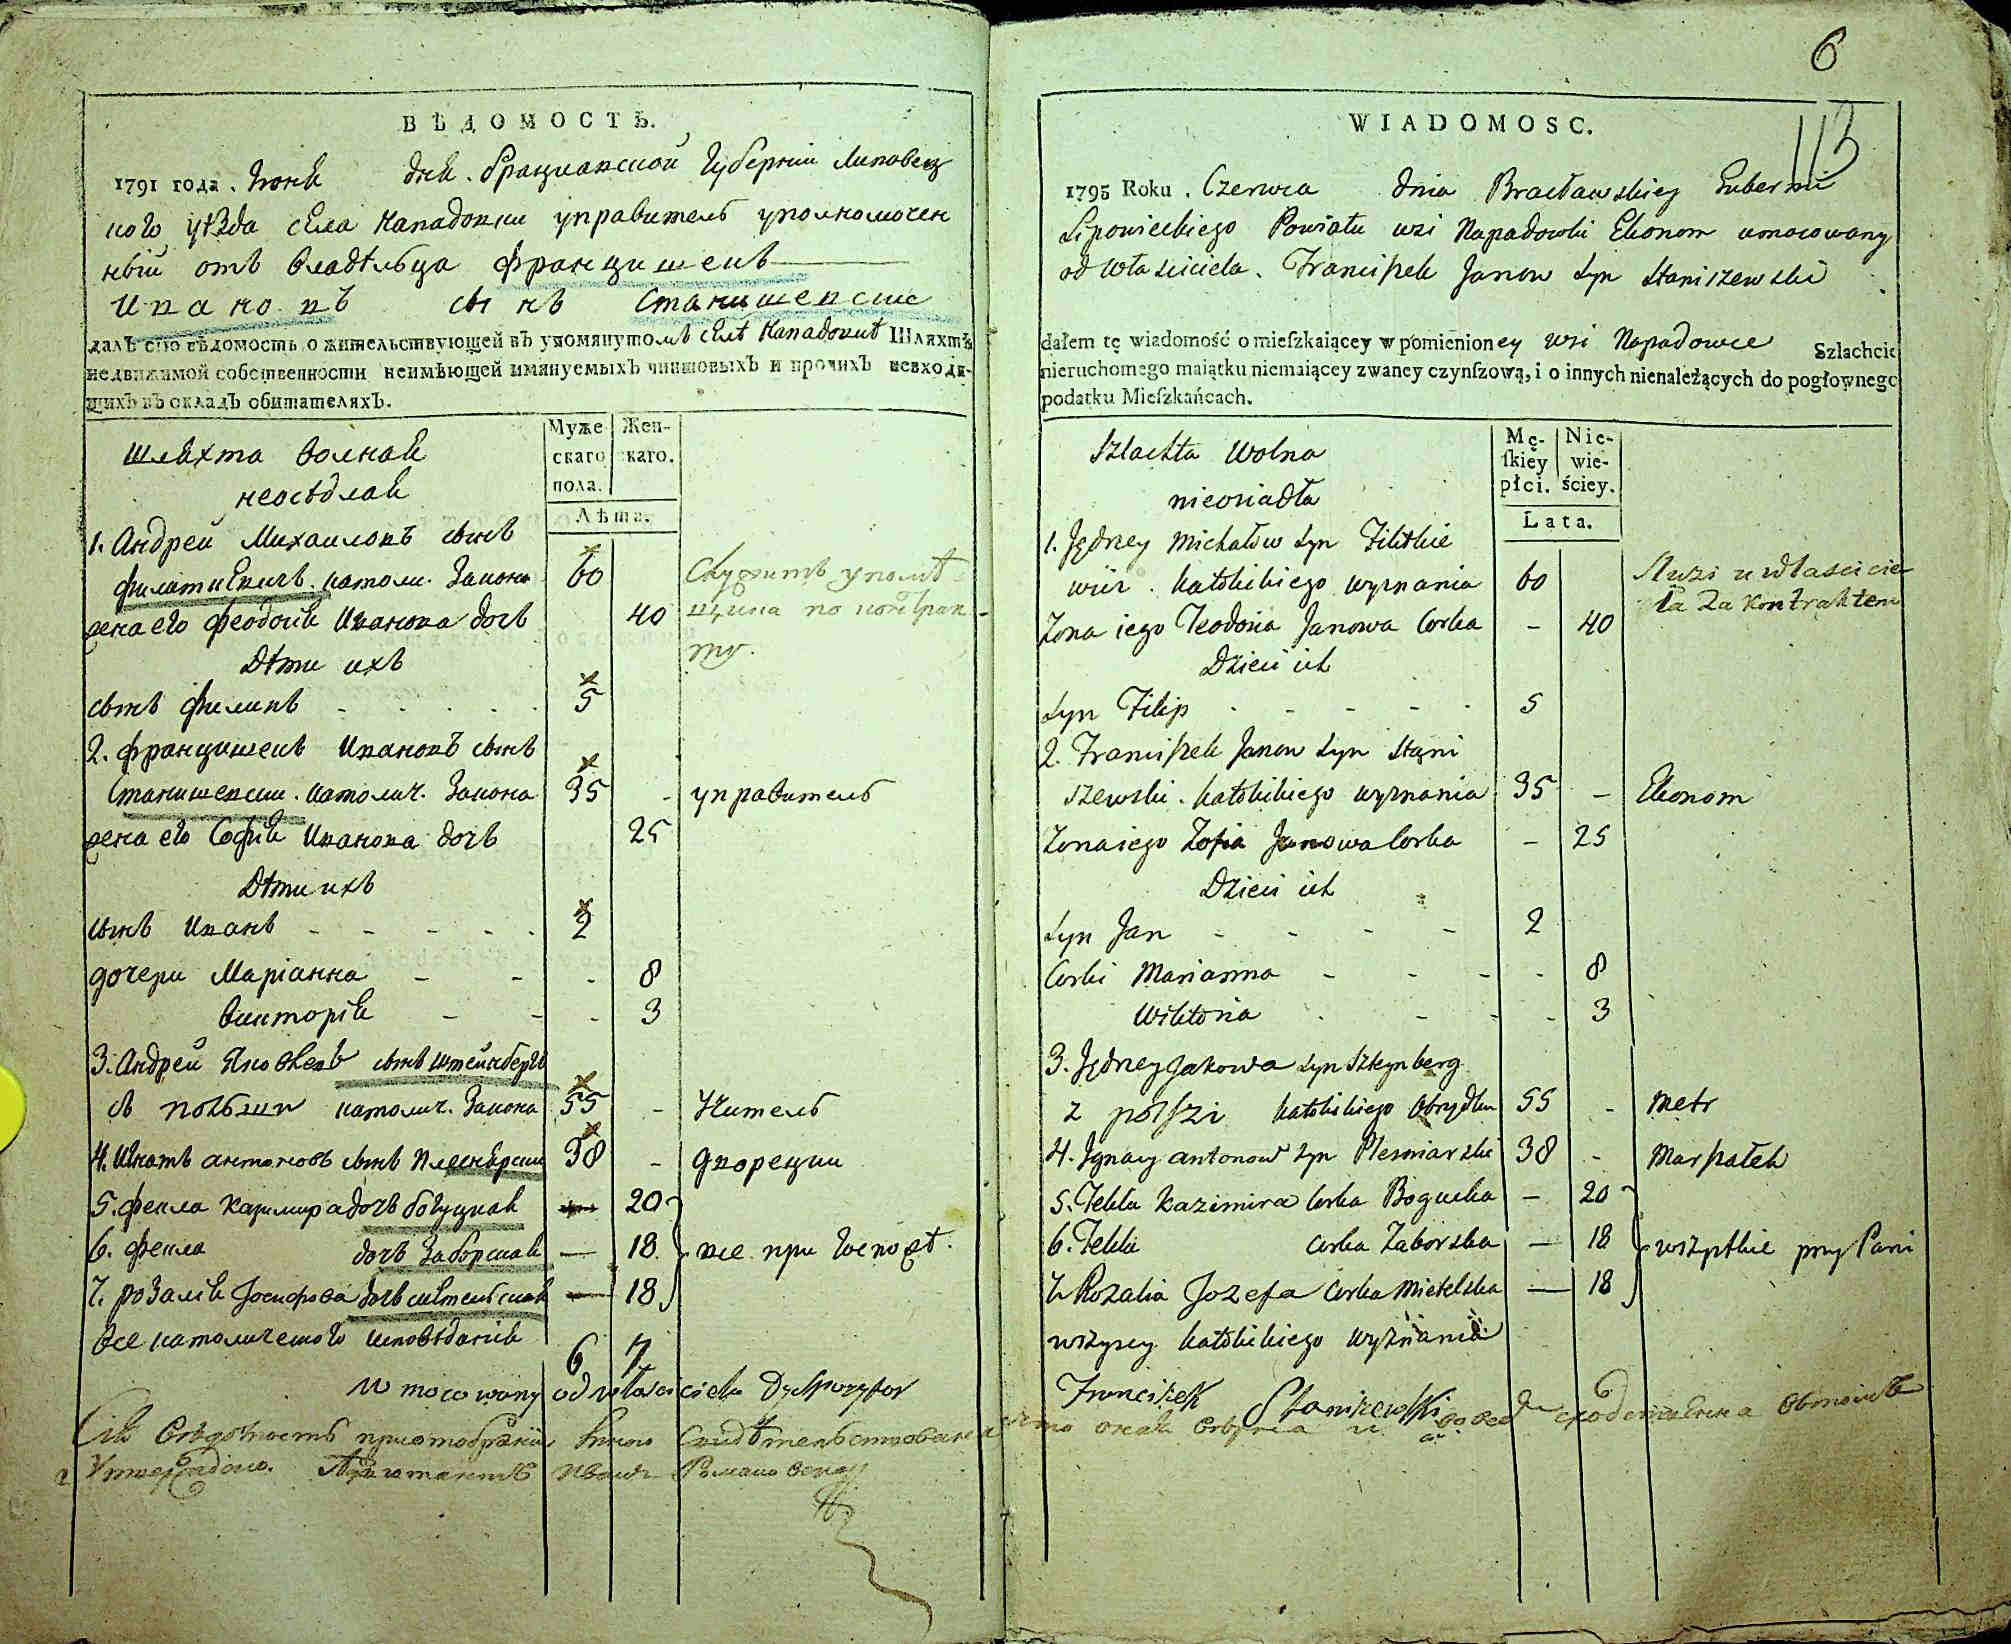 ВѢДОМОСТЬ.
1791 года. Июня дня. брацлавской Губернии Липовец
кого уѣзда села Нападовки управитель уполномочен
ный отъ владѣльца францишекъ
Ивановъ сынъ Станишевский
далъ сию вѣдомость о жительствующей въ упомянутомъ селѣ Нападовкѣ Шляхтѣ
недвижимой собственности неимѣющей имянуемыхъ чиншовыхъ и прочихъ невходя-
щихъ въ окладъ обитателяхъ.
Муже
скаго
пола.
Жен-
каго.
Лѣта.
Шляхта волная
неосѣдлая
1. Андрей Михаиловъ сынъ
филаткевичъ. католи. Закона 60 Служитъ у помѣ
жена его феодосія Иванова дочь 40 щика по контрак
ту.
Дѣти ихъ
сынъ филипъ 5
2. францишекъ Ивановъ сынъ
Станишевски. католич. Закона 35 - управитель
жена его Софія Иванова дочь 25
Дѣти ихъ
сынъ Иванъ 2
дочери Маріанна 8
викторія 3
3. Андрей Яковлевъ сынъ штейнбергъ
съ польши католич. Закона 55 - Учитель
4. Игнатъ антоновъ сынъ Плеснярски 38 - дворецки
5. фекла казимира дочь богуцкая — 20
6. фекла дочь Заборская — 18 все при Госпожѣ.
7. розалія Јосифова дочь — 18
все католического исповѣданія
6 7
Umocowany od właściciela Dyspozytor
Утверждено.
6
113
WIADOMOSC.
1795 Roku. Czerwca dnia Bracławskiey Gubernii
Lipowieckiego Powiatu wsi Napadowki Ekonom umocowany
od własciciela. Franciszek Janow Syn Staniszewski
dałem tę wiadomość o mieſzkaiącey w pomienioney wsi Napadowce Szlachcie
nieruchomego maiątku niemaiącey zwaney czynſzową, i o innych nienależących do pogłownego
podatku Mieſzkańcach.
Mę-
ſkiéy
płci.
Nie-
wie-
ściey.
Lata.
Szlachta Wolna
nieosiadła
1. Jędrzey Michałow Syn Filitkie
wicz. katolickiego wyznania 60 Służi u własciciе
la Za Kontraktem
Zona iego Teodosia Janowa Corka - 40
Dzieci ich
Syn Filip 5
2. Franciszek Janow Syn Stani
szewski. katolickiego wyznania 35 - Ekonom
Zona iego Zofia Janowa Corka - 25
Dzieci ich
Syn Jan 2
Corki Marianna 8
Wiktoria 3
3. Jędrzey Jakowa Syn Szteynberg
z polſzi katolickiego Obrydku 55 - Metr
4. Jgnacy antonow Syn Plesniarski 38 - Marszałek
5. Tekla Kazimira Corka Bogucka — 20
6. Tekla Corka Zaborska — 18 wszystkie przy Pani
7. Rozalia Jozefa Corka — 18
wszyscy katolickiego wyznania
Franciszek Staniszewski